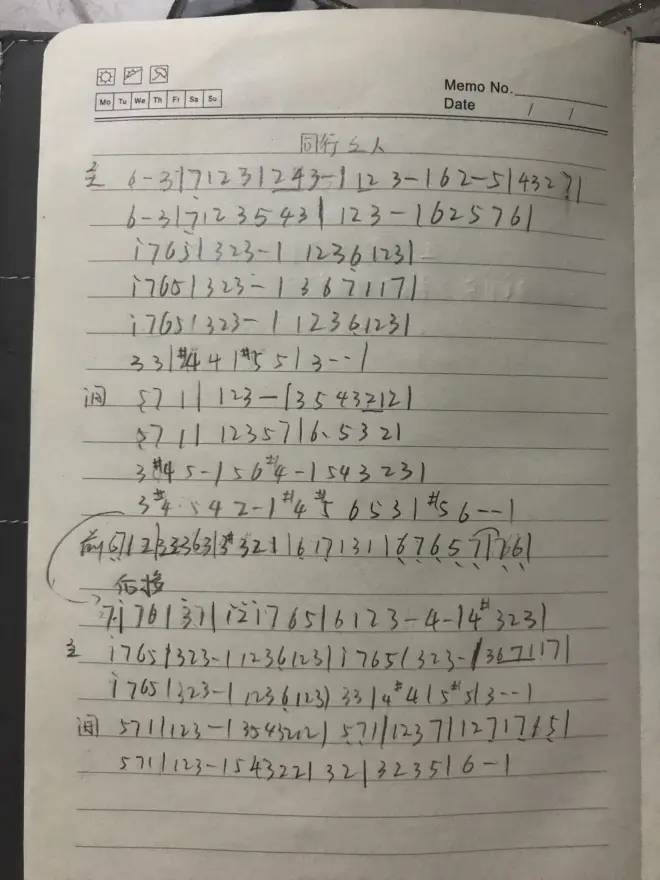 Memo No.
Mo Tu We Th Fr Sa Su
Date / /
同行之人
主 6-3|7123|243-|123-|62-5|4327|
6-3|7123543|123-|625761
i765|323-|1236123|
i765|323-|3671171
i765|323-|1236123|
33|#44|#55|3--|
间 571|123-|3543212|
571|12357|6.532|
3#45-|56#4-|543231
3#4.542-|#4#56531#56--|
前
衔接
7|i76|37|i2i765|6123-4-|4#323|
主 i765|323-|1236123|i765|323-|3671171
i765|323-|1236123)33|4#4|5#5|3--|
间 571|123-|3545212|571|1237|1271765|
571|123-|54322|32|3235|6-|